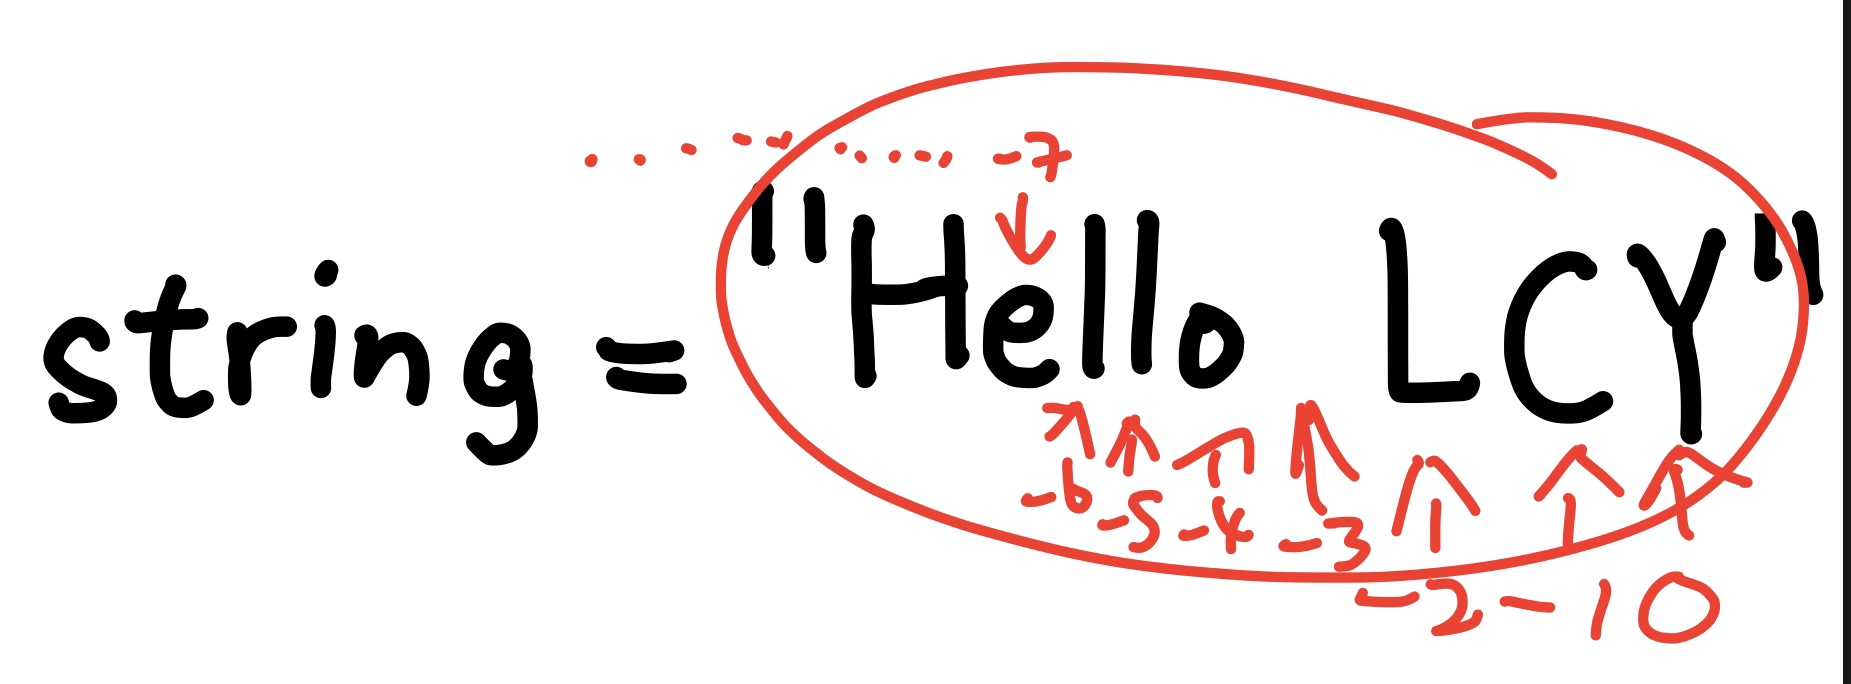 -7
string = "Hello LCY"
-6 -5 -4 -3 -2 -1 0